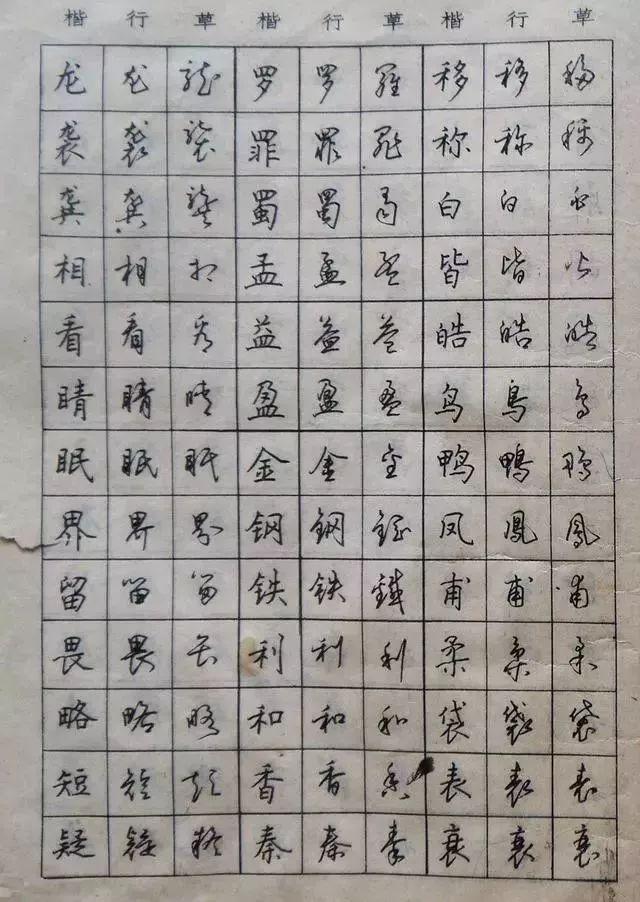 楷 行 草 楷 行 草 楷 行 草
龙 龙 龍 罗 罗 羅 移 移 移
袭 袭 襲 罪 罪 罪 称 称 称
龚 龚 龔 蜀 蜀 蜀 白 白 白
相 相 相 孟 孟 孟 皆 皆 皆
看 看 看 益 益 益 皓 皓 皓
睛 睛 睛 盈 盈 盈 鸟 鳥 鳥
眠 眠 眠 金 金 金 鸭 鴨 鴨
界 界 界 钢 鋼 鋼 凤 鳳 鳳
留 留 留 铁 铁 鐵 甫 甫 甫
畏 畏 畏 利 利 利 柔 柔 柔
略 略 略 和 和 和 袋 袋 袋
短 短 短 香 香 香 表 表 表
疑 疑 疑 秦 秦 秦 衰 衰 衰